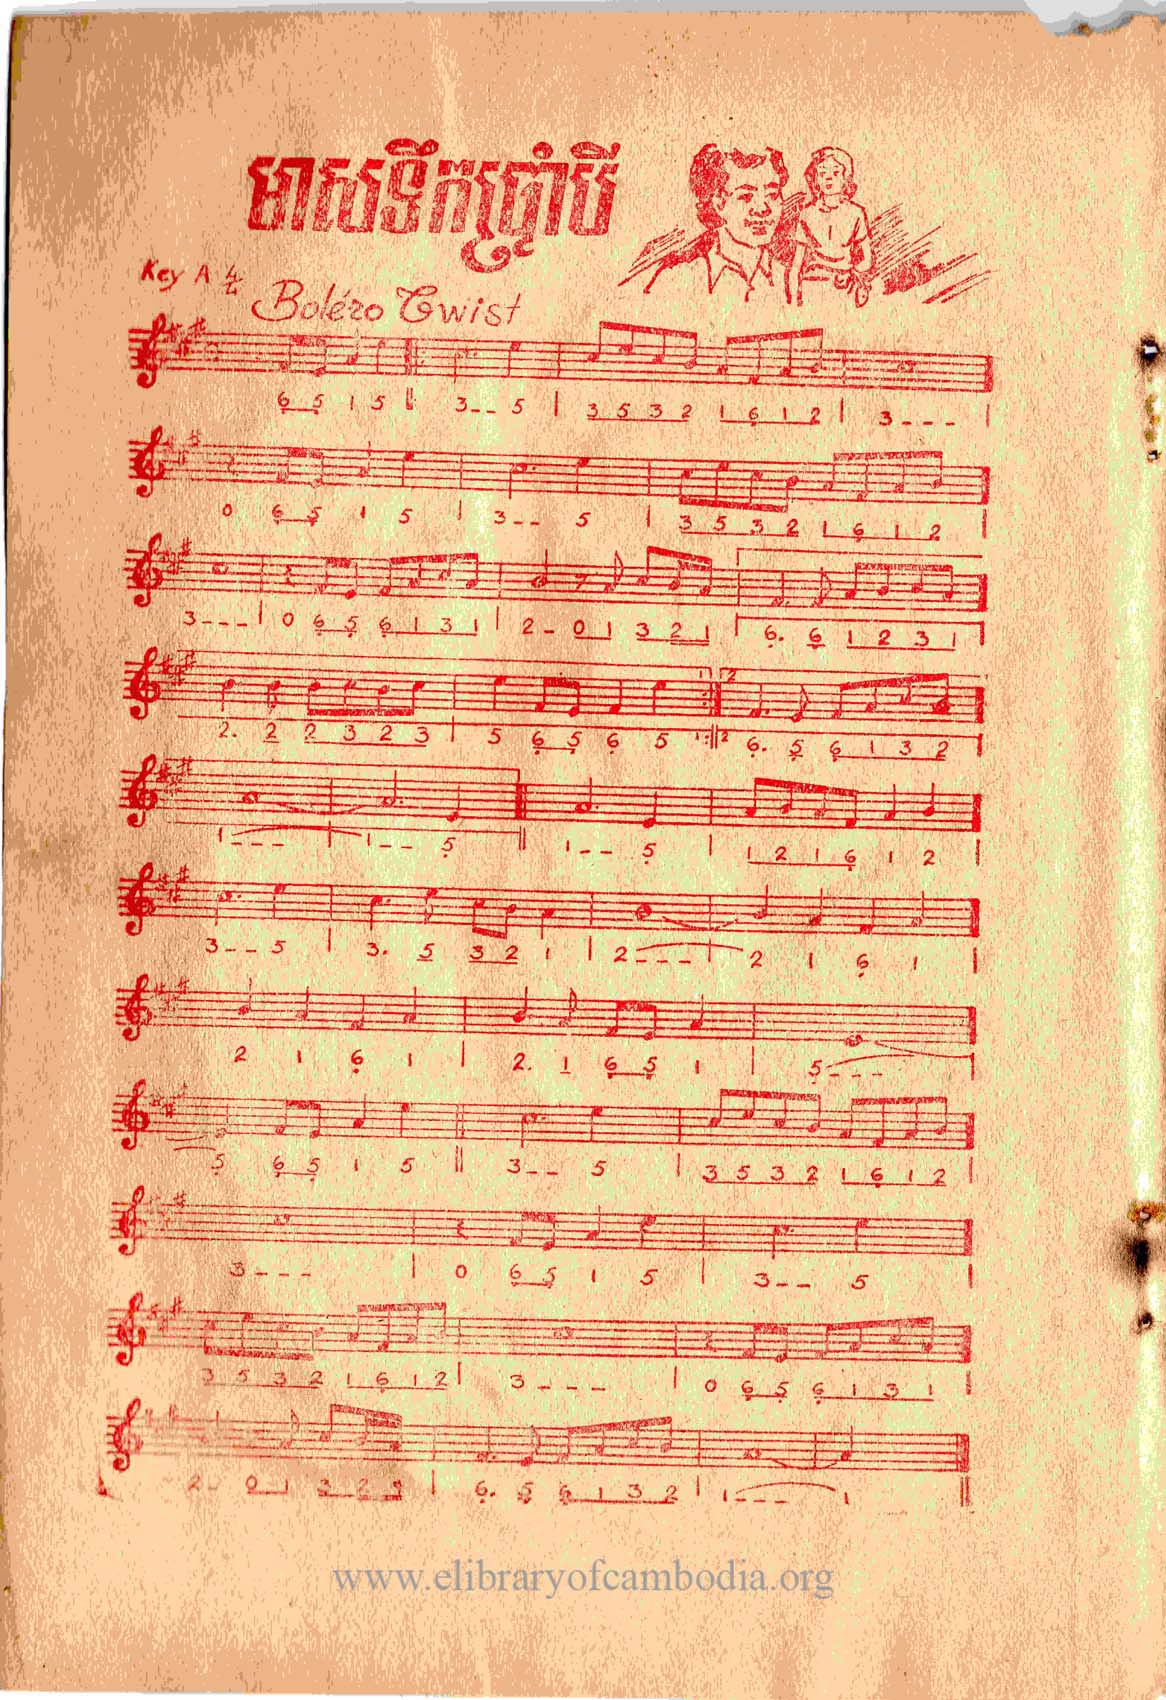 មាសទឹកប្រាំបី
Key A 4/4
Boléro Twist
6 5 1 5 || 3 _ _ 5 | 3 5 3 2 1 6 1 2 | 3 _ _ _ |
0 6 5 1 5 | 3 _ _ 5 | 3 5 3 2 1 6 1 2 |
3 _ _ _ | 0 6 5 6 1 3 1 | 2 - 0 1 3 2 1 | 6. 6 1 2 3 1 |
2. 2 2 3 2 3 | 5 6 5 6 5 1 :|| 2 6. 5 6 1 3 2 |
1 _ _ _ | 1 _ _ 5 || 1 _ _ 5 | 1 2 1 6 1 2 |
3 _ _ 5 | 3. 5 3 2 1 | 2 _ _ _ | 2 1 6 1 |
2 1 6 1 | 2. 1 6 5 1 | 5 _ _ _ |
5 6 5 1 5 || 3 _ _ 5 | 3 5 3 2 1 6 1 2 |
3 _ _ _ | 0 6 5 1 5 | 3 _ _ 5 |
3 5 3 2 1 6 1 2 | 3 _ _ _ | 0 6 5 6 1 3 1 |
2 - 0 1 3 2 1 | 6. 5 6 1 3 2 | 1 _ _ _ 1 ||
www.elibraryofcambodia.org